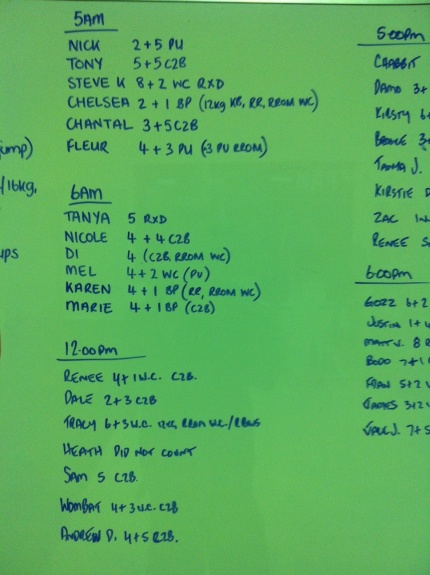 5AM
NICK 2+5 PU
TONY 5+5 C2B
STEVE K 8+2 WC RXD
CHELSEA 2+1 BP (12kg KB, RR, RROM WC)
CHANTAL 3+5 C2B
FLEUR 4+3 PU (3 PU RROM)
6AM
TANYA 5 RXD
NICOLE 4+4 C2B
DI 4 (C2B, RROM WC)
MEL 4+2 WC (PU)
KAREN 4+1 BP (RR, RROM WC)
MARIE 4+1 BP (C2B)
12:00pm
RENEE 4+1 W.C. C2B.
DALE 2+3 C2B
TRACY 6+3 W.C. 12KG, RROM W.C./RROWS
HEATH DID NOT COUNT
SAM 5 C2B.
WOMBAT 4+3 W.C. C2B
ANDREW D. 4+5 C2B.
jump)
/16kg,
ups
5:00pm
CRABBIT
DAMO 3+
KIRSTY 6+
BROOKE 3+
TANYA J.
KIRSTIE
ZAC
RENEE
6:00pm
GOZZ 6+2
JUSTIN 1+
MATT J. 8
BODO 7+1
FRAN 5+2
JAMES 3+2
7+5